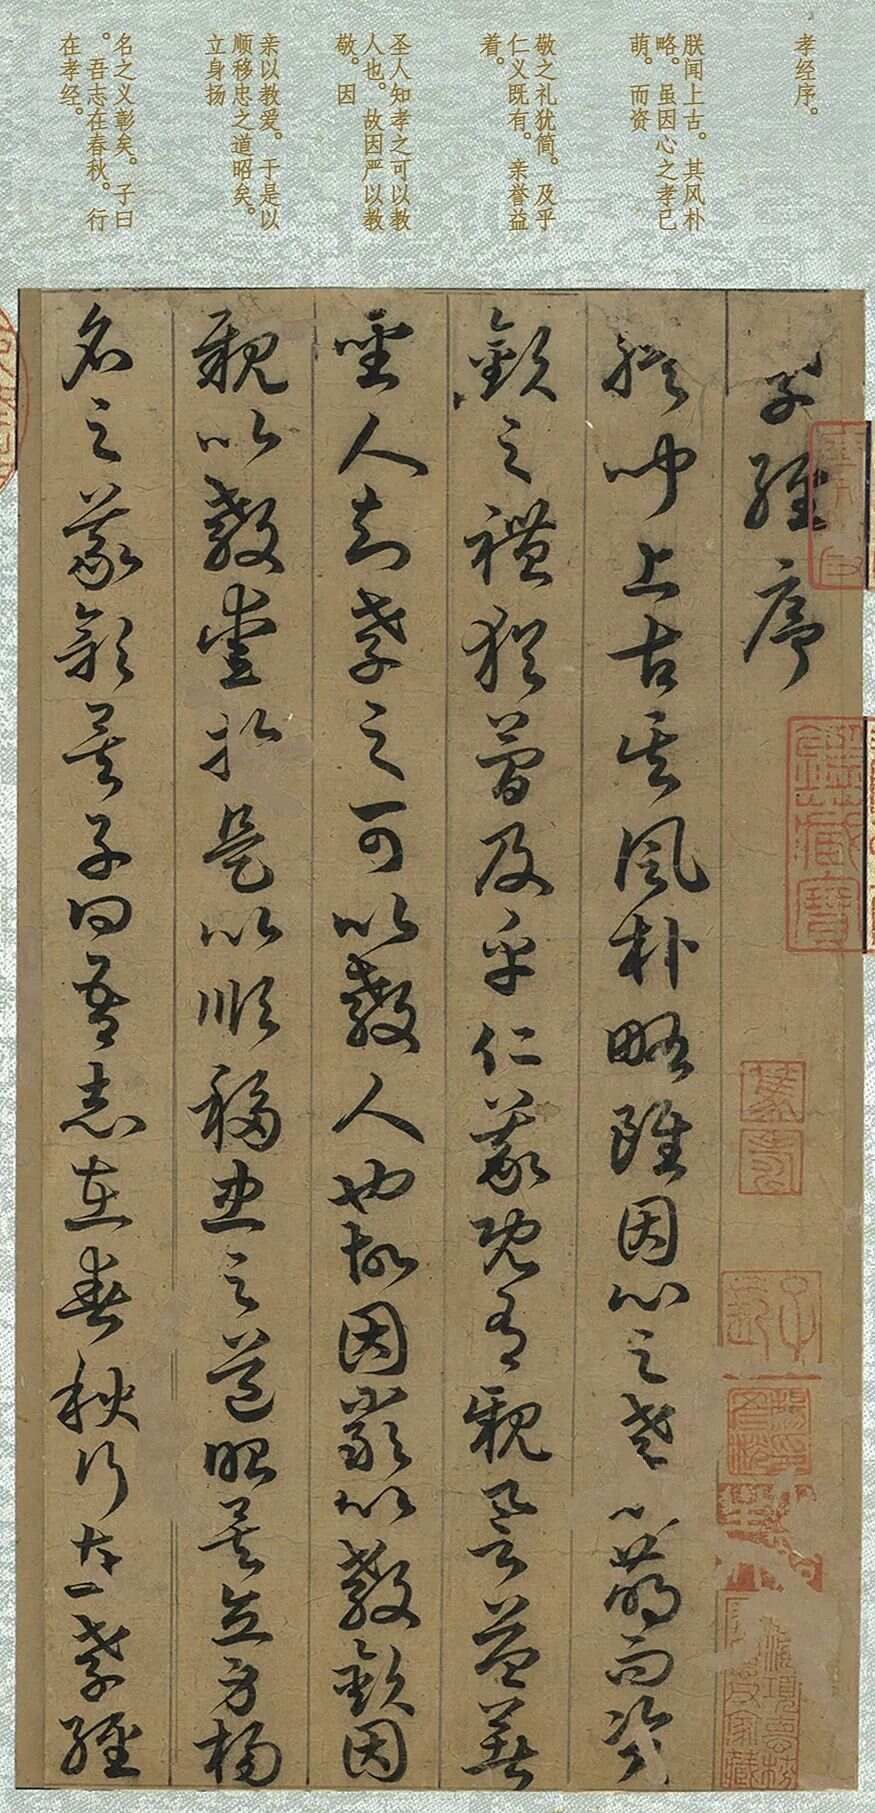 孝经序。
朕闻上古。其风朴
略。虽因心之孝已
萌。而资
敬之礼犹简。及乎
仁义既有。亲誉益
着。
圣人知孝之可以教
人也。故因严以教
敬。因
亲以教爱。于是以
顺移忠之道昭矣。
立身扬
名之义彰矣。子曰
。吾志在春秋。行
在孝经。
孝經序
朕聞上古其風朴略雖因心之孝已萌而資
敬之禮猶簡及乎仁義既有親譽益著
聖人知孝之可以教人也故因嚴以教敬因
親以教愛於是以順移忠之道昭矣立身揚
名之義彰矣子曰吾志在春秋行在孝經